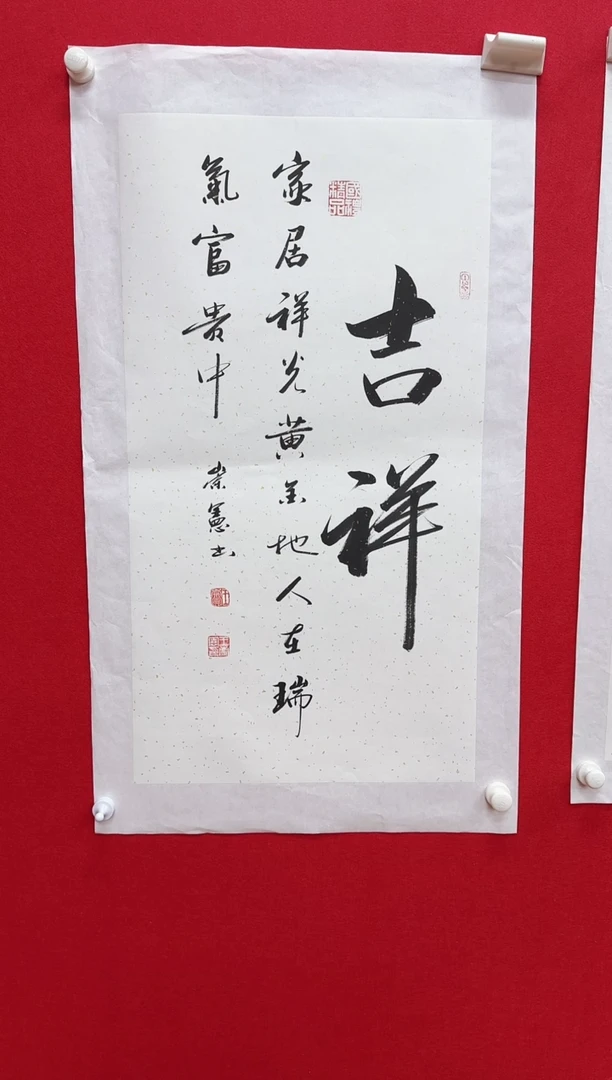 吉祥
家居祥光黄金地人在瑞
氣富貴中
崇憲书